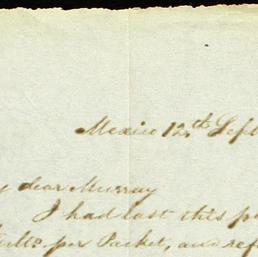 Mexico 12th Sept
y dear Murray
I had last this p
per Packet, and ref